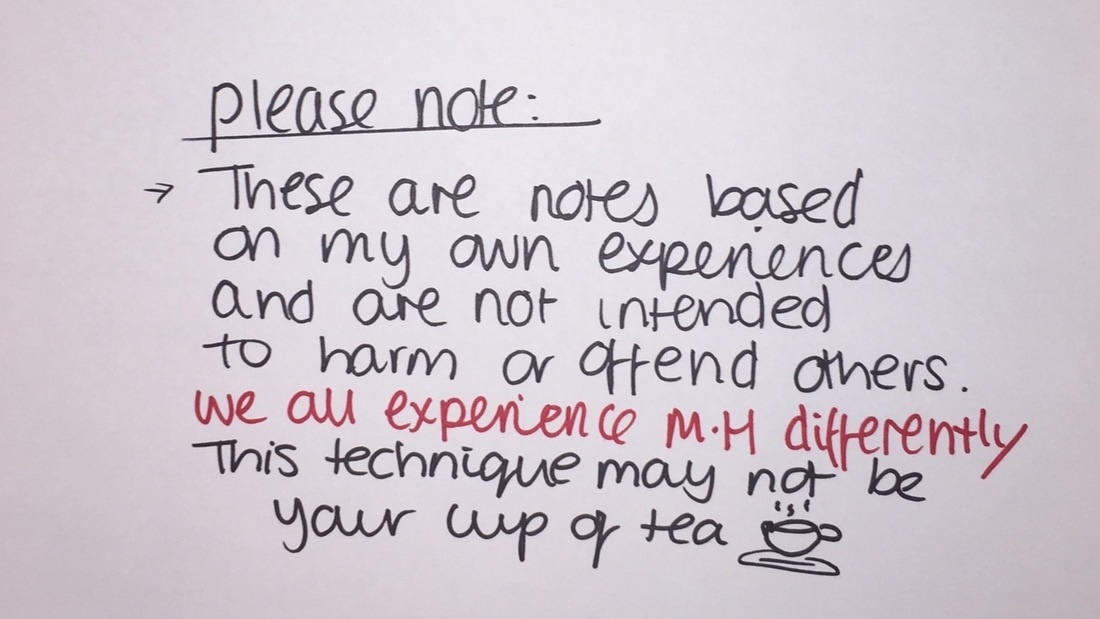 please note:
→ These are notes based
on my own experiences
and are not intended
to harm or offend others.
we all experience M.H differently
This technique may not be
your cup of tea